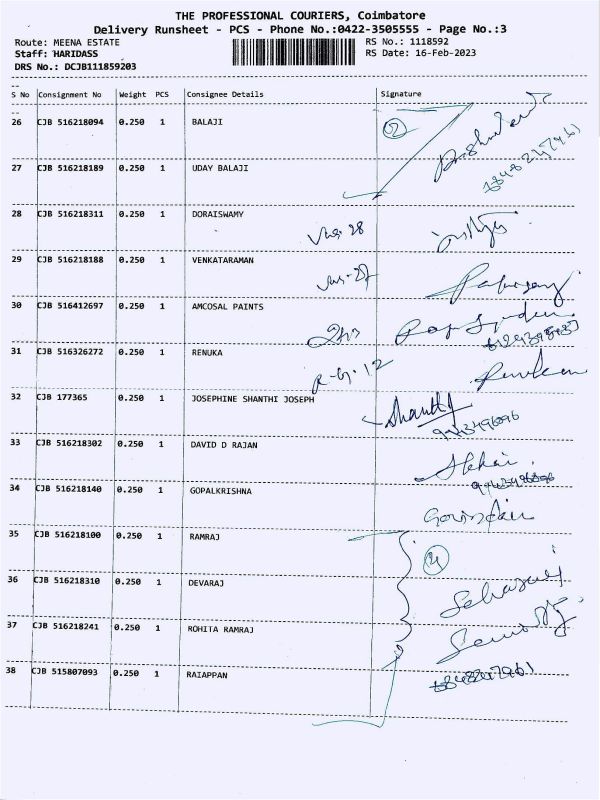 THE PROFESSIONAL COURIERS, Coimbatore
Delivery Runsheet - PCS - Phone No.:0422-3505555 - Page No.:3
Route: MEENA ESTATE RS No.: 1118592
Staff: HARIDASS RS Date: 16-Feb-2023
DRS No.: DCJB111859203
S No Consignment No Weight PCS Consignee Details Signature
26 CJB 516218094 0.250 1 BALAJI
27 CJB 516218189 0.250 1 UDAY BALAJI
28 CJB 516218311 0.250 1 DORAISWAMY
29 CJB 516218188 0.250 1 VENKATARAMAN
30 CJB 516412697 0.250 1 AMCOSAL PAINTS
31 CJB 516326272 0.250 1 RENUKA
32 CJB 177365 0.250 1 JOSEPHINE SHANTHI JOSEPH Shanthy
33 CJB 516218302 0.250 1 DAVID D RAJAN
34 CJB 516218140 0.250 1 GOPALKRISHNA
35 CJB 516218100 0.250 1 RAMRAJ
36 CJB 516218310 0.250 1 DEVARAJ
37 CJB 516218241 0.250 1 ROHITA RAMRAJ
38 CJB 515807093 0.250 1 RAIAPPAN